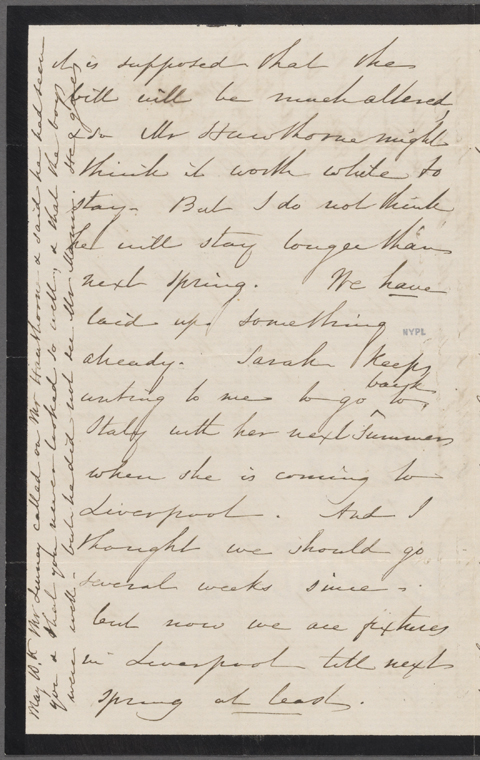 it is supposed that the
bill will be much altered,
so Mr Hawthorne might
think it worth while to
stay. But I do not think
he will stay longer than
next spring. We have
laid up something
NYPL
already. Sarah keeps
writing to me to go back to
Italy with her next summer
when she is coming to
Liverpool. And I
thought we should go
several weeks since.
but now we are fixtures
in Liverpool till next
spring at least.
May 10th Mr called on Mr Hawthorne & said he had seen
you & that you never looked so well, & that the boys
were well - but he did not see Mr Mann. He